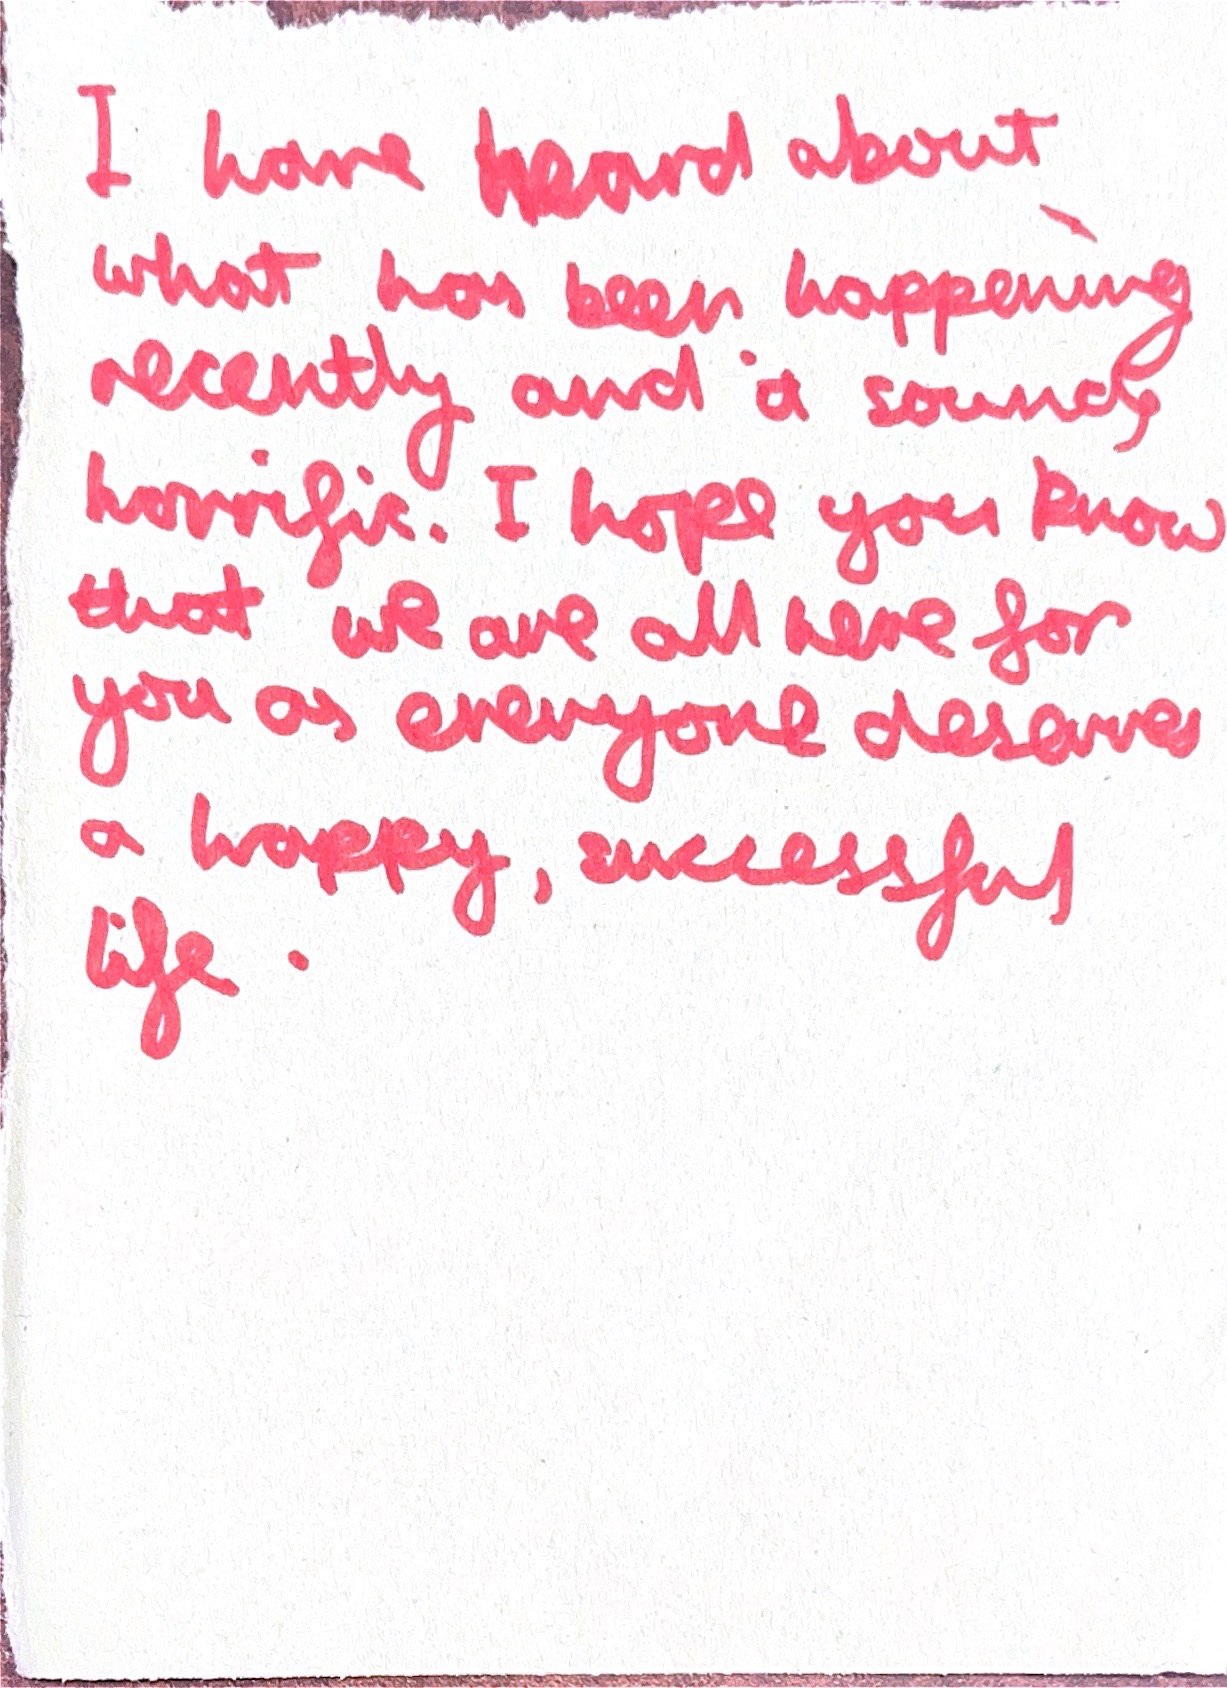 I have heard about
what has been happening
recently and it sounds
horrific. I hope you know
that we are all here for
you as everyone deserves
a happy, successful
life.